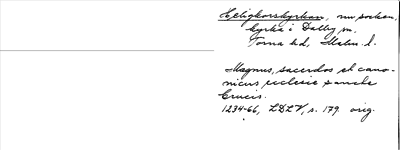 Heligkorskyrkan, nu socken-
kyrka i Dalby sn.
Torna hd, Malm. l.
Magnus, sacerdos et cano-
nicus ecclesie sancte
Crucis.
1234-66, LDLV, s. 179. orig.